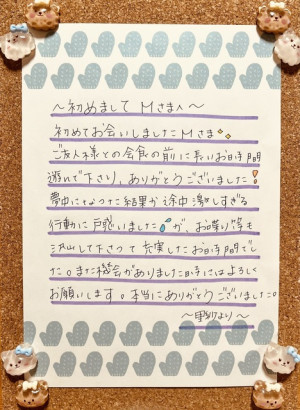 〜初めまして Mさまへ〜
初めてお会いしましたMさま
ご友人様との会食の前に長いお時間
遊んで下さり、ありがとうございました!
夢中になった結果が途中激しすぎる
行動に戸惑いましたが、お喋り等も
沢山して下さって充実したお時間でし
た。また機会がありました時にはよろしく
お願いします。本当にありがとうございました。
より〜